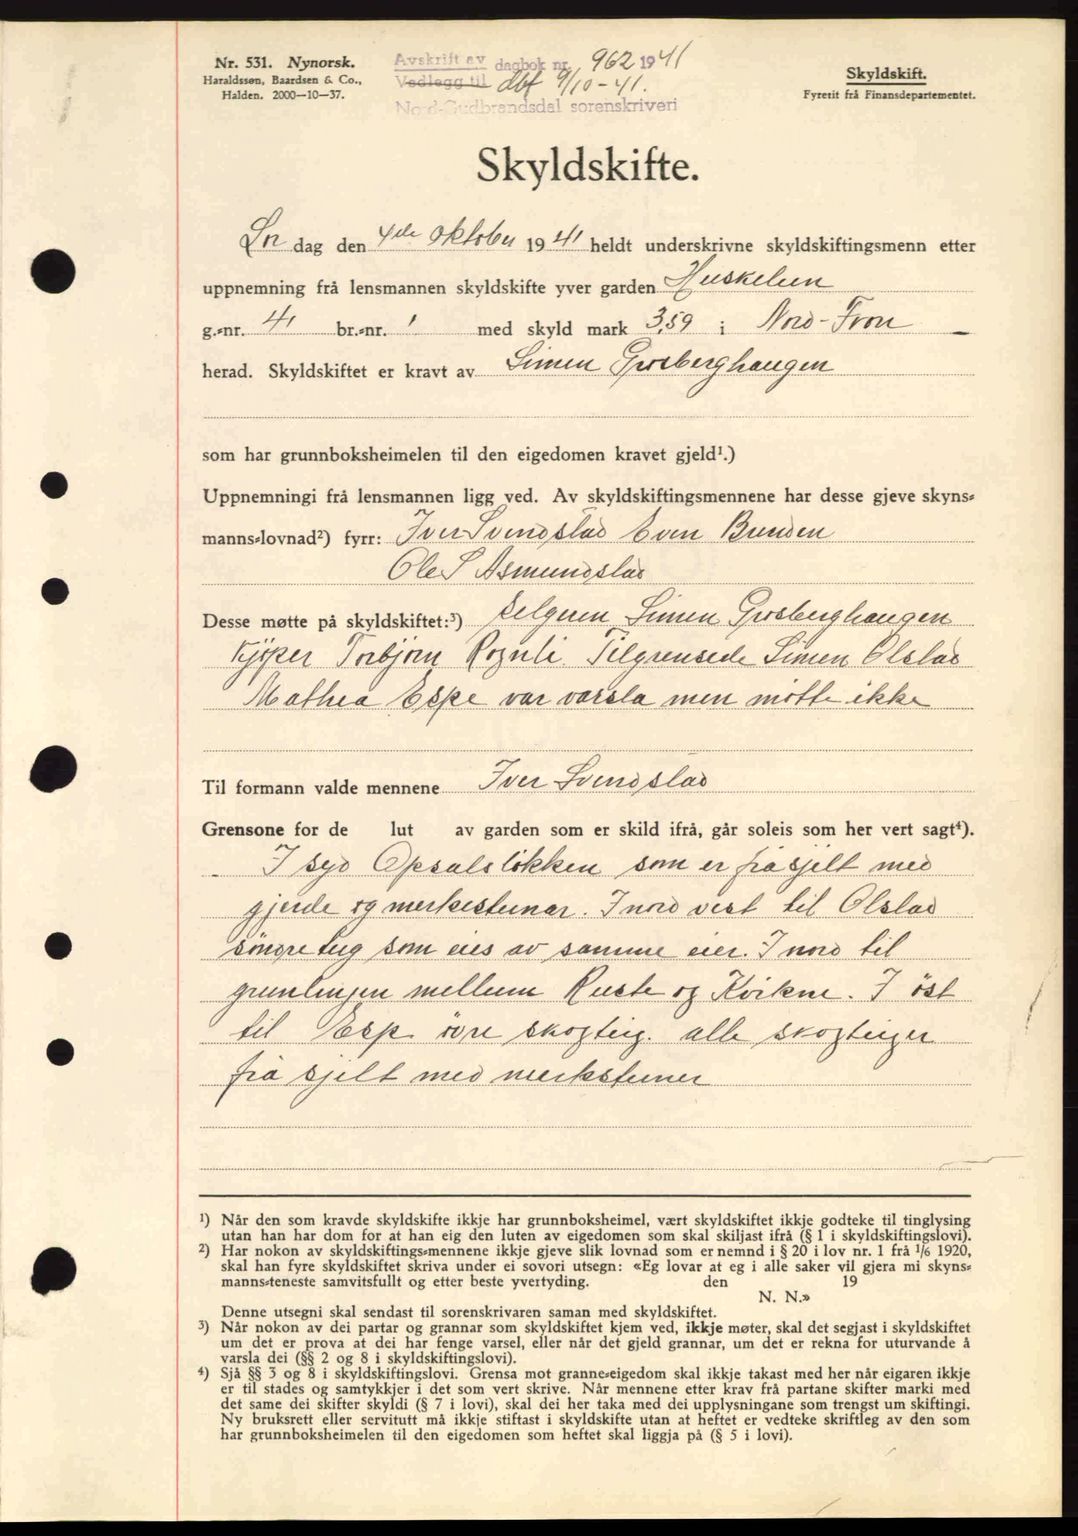 Nr. 531. Nynorsk.
Haraldssøn, Baardsen & Co.,
Halden. 2000—10—37.
Avskrift av dagbok nr. 962 1941
Vedlegg til dbf 9/10-41.
Nord-Gudbrandsdal sorenskriveri
Skyldskift.
Fyretit frå Finansdepartementet.
Skyldskifte.
Lør dag den 4de oktober 1941 heldt underskrivne skyldskiftingsmenn etter
uppnemning frå lensmannen skyldskifte yver garden Huskelien
g.-nr. 41 br.-nr. 1 med skyld mark 3,59 i Nord-Fron
herad. Skyldskiftet er kravt av Simen Grosberghaugen
som har grunnboksheimelen til den eigedomen kravet gjeld¹.)
Uppnemningi frå lensmannen ligg ved. Av skyldskiftingsmennene har desse gjeve skyns-
manns-lovnad²) fyrr: Iver Svendstad Even Bunden
Ole S Asmundstad
Desse møtte på skyldskiftet:³) selgeren Simen Grosberghaugen
Kjöper Torbjörn Rognli. Tilgrensede Simen Olstad
Mathea Espe var varsla men mötte ikke
Til formann valde mennene Iver Svendstad
Grensone for de lut av garden som er skild ifrå, går soleis som her vert sagt⁴).
I syd Opsalslökken som er fra sjilt med
gjerde og merkesteinar. I nord vest til Olstad
söndre teig som eies av samme eier. I nord til
grenlinjen mellem Ruste og Kvikne. I öst
til Esp övre skogteig. alle skogteiger
fra sjilt med merksteiner
¹) Når den som kravde skyldskifte ikkje har grunnboksheimel, vært skyldskiftet ikkje godteke til tinglysing
utan han har dom for at han eig den luten av eigedomen som skal skiljast ifrå (§ 1 i skyldskiftingslovi).
²) Har nokon av skyldskiftings-mennene ikkje gjeve slik lovnad som er nemnd i § 20 i lov nr. 1 frå 1/6 1920,
skal han fyre skyldskiftet skriva under ei sovori utsegn: «Eg lovar at eg i alle saker vil gjera mi skyns-
manns-teneste samvitsfullt og etter beste yvertyding. den 19
N. N.»
Denne utsegni skal sendast til sorenskrivaren saman med skyldskiftet.
³) Når nokon av dei partar og grannar som skyldskiftet kjem ved, ikkje møter, skal det segjast i skyldskiftet
um det er prova at dei har fenge varsel, eller når det gjeld grannar, um det er rekna for uturvande å
varsla dei (§§ 2 og 8 i skyldskiftingslovi).
⁴) Sjå §§ 3 og 8 i skyldskiftingslovi. Grensa mot granne-eigedom skal ikkje takast med her når eigaren ikkje
er til stades og samtykkjer i det som vert skrive. Når mennene etter krav frå partane skifter marki med
det same dei skifter skyldi (§ 7 i lovi), skal dei her taka med dei upplysningane som trengst um skiftingi.
Ny bruksrett eller servitutt må ikkje stiftast i skyldskifte utan at heftet er vedteke skriftleg av den som
har grunnboksheimelen til den eigedomen som heftet skal liggja på (§ 5 i lovi).